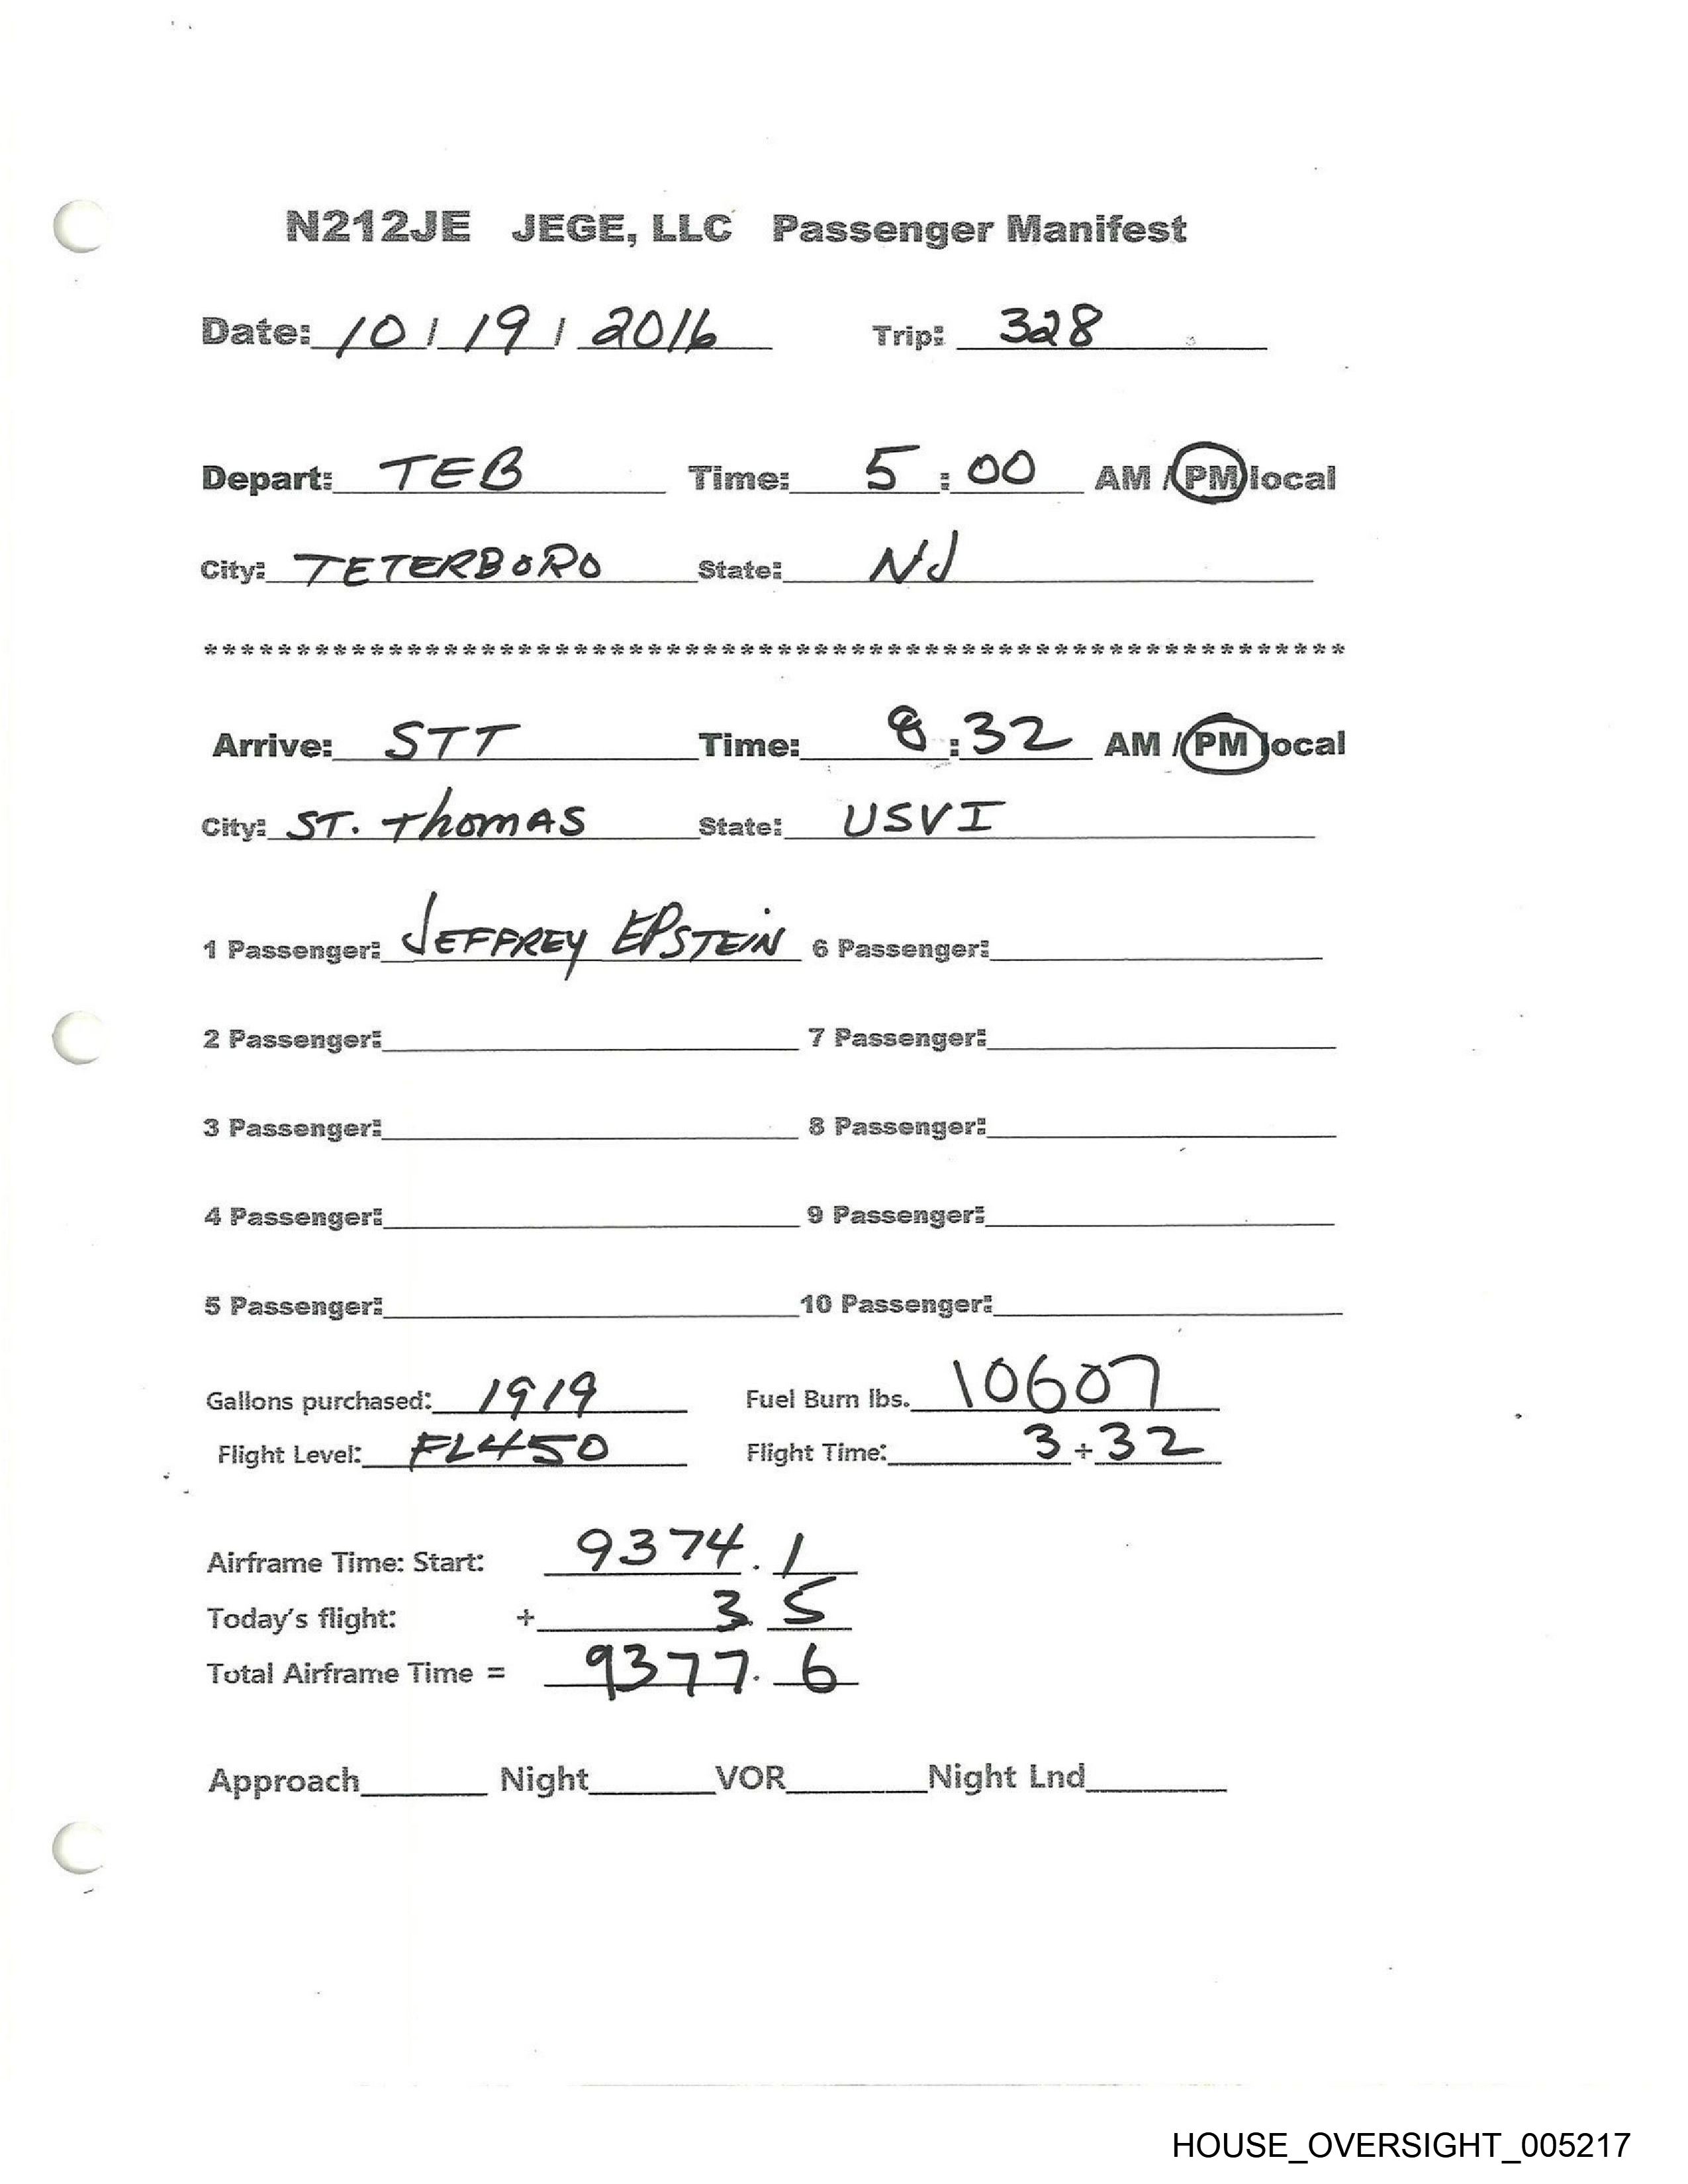 N212JE JEGE, LLC Passenger Manifest
Date: 10 / 19 / 2016 Trip: 328
Depart: TEB Time: 5 : 00 AM / PM local
City: TETERBORO State: NJ
**************************************************************
Arrive: STT Time: 8 : 32 AM / PM local
City: ST. THOMAS State: USVI
1 Passenger: JEFFREY EPSTEIN 6 Passenger:
2 Passenger: 7 Passenger:
3 Passenger: 8 Passenger:
4 Passenger: 9 Passenger:
5 Passenger: 10 Passenger:
Gallons purchased: 1919 Fuel Burn lbs. 10607
Flight Level: FL450 Flight Time: 3 + 32
Airframe Time: Start: 9374.1
Today's flight: + 3.5
Total Airframe Time = 9377.6
Approach Night VOR Night Lnd
HOUSE_OVERSIGHT_005217